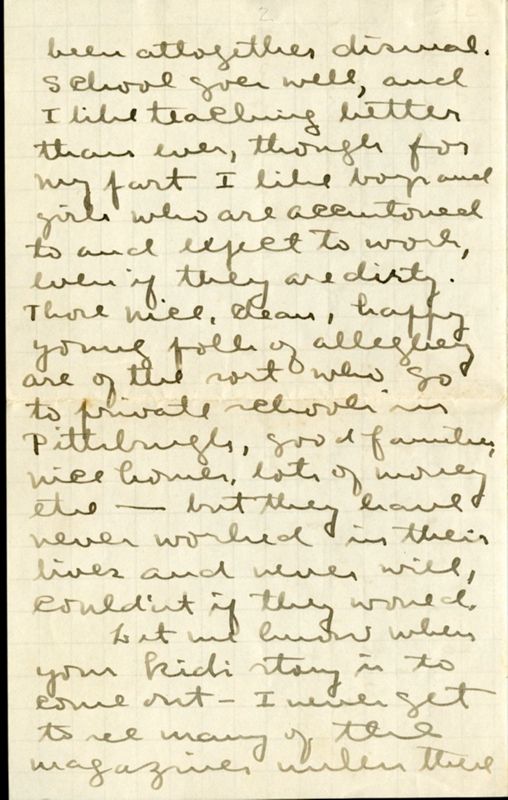 2
been alltogether dismal.
School goes well, and
I like teaching better
than ever, though for
my part I like boys and
girls who are accustomed
to and expect to work,
even if they are dirty.
Those nice, clean, happy
young folk of allegheny
are of the sort who go
to private schools in
Pittsburgh, good families,
nice homes, lots of money
etc — but they have
never worked in their
lives and never will,
couldn't if they would.
Let me know when
your kids story is to
come out — I never get
to see many of the
magazines unless there